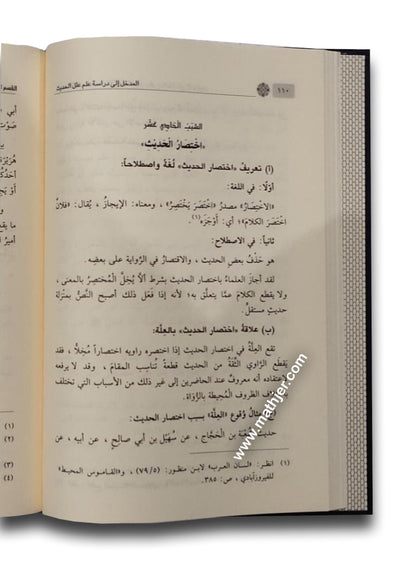 ١١٠
المدخل إلى دراسة علم علل الحديث
السبب الحادي عشر
«اختصار الحديث»
(أ) تعريف «اختصار الحديث» لُغةً واصطلاحاً:
أوّلًا: في اللغة:
«الاختصار» مصدرُ «اختَصَرَ يَختَصِرُ»، ومعناه: الإيجازُ، يُقال: «فلانٌ
اختَصَرَ الكلامَ»؛ أي: أَوْجَزَه(١).
ثانياً: في الاصطلاح:
هو حَذْفُ بعضِ الحديثِ، والاقتصارُ في الرِّواية على بعضِه.
لقد أجازَ العلماءُ باختصار الحديثِ بشرط ألّا يُخِلَّ المُختصِرُ بالمعنى،
ولا يقطع الكلامَ عمّا يتعلَّق به؛ لأنه إذا فَعَل ذلك أصبح النَّصُّ بمنزلة
حديثٍ مستقلٍّ.
(ب) علاقةُ «اختصار الحديث» بالعِلّة:
تقع العِلّةُ في اختصار الحديث إذا اختصره راويه اختصاراً مُخِلًّا، فقد
يَقطَع الرَّاوي الثِّقةُ من الحديث قطعةً تُناسِب المقامَ، وقد لا يرفعه
لاعتقاده أنه معروفٌ عند الحاضرين إلى غير ذلك من الأسباب التي تختلف
الظروف المُحيطة بالرُّوَاة.
مثالُ وُقوع «العِلّة» بسبب اختصار الحديث:
حديث شُعْبَة بن الحَجَّاج، عن سُهَيْل بن أبي صالحٍ، عن أبيه، عن
(١) انظر: «لسان العرب» لابن منظور: (٧٩/٥)، و«القاموس المحيط»
للفيروزآبادي، ص: ٣٨٥.
www.mathjer.com
القسم
أبي
صَوْتٍ
(١)
(٢)
(٣)
(٤)